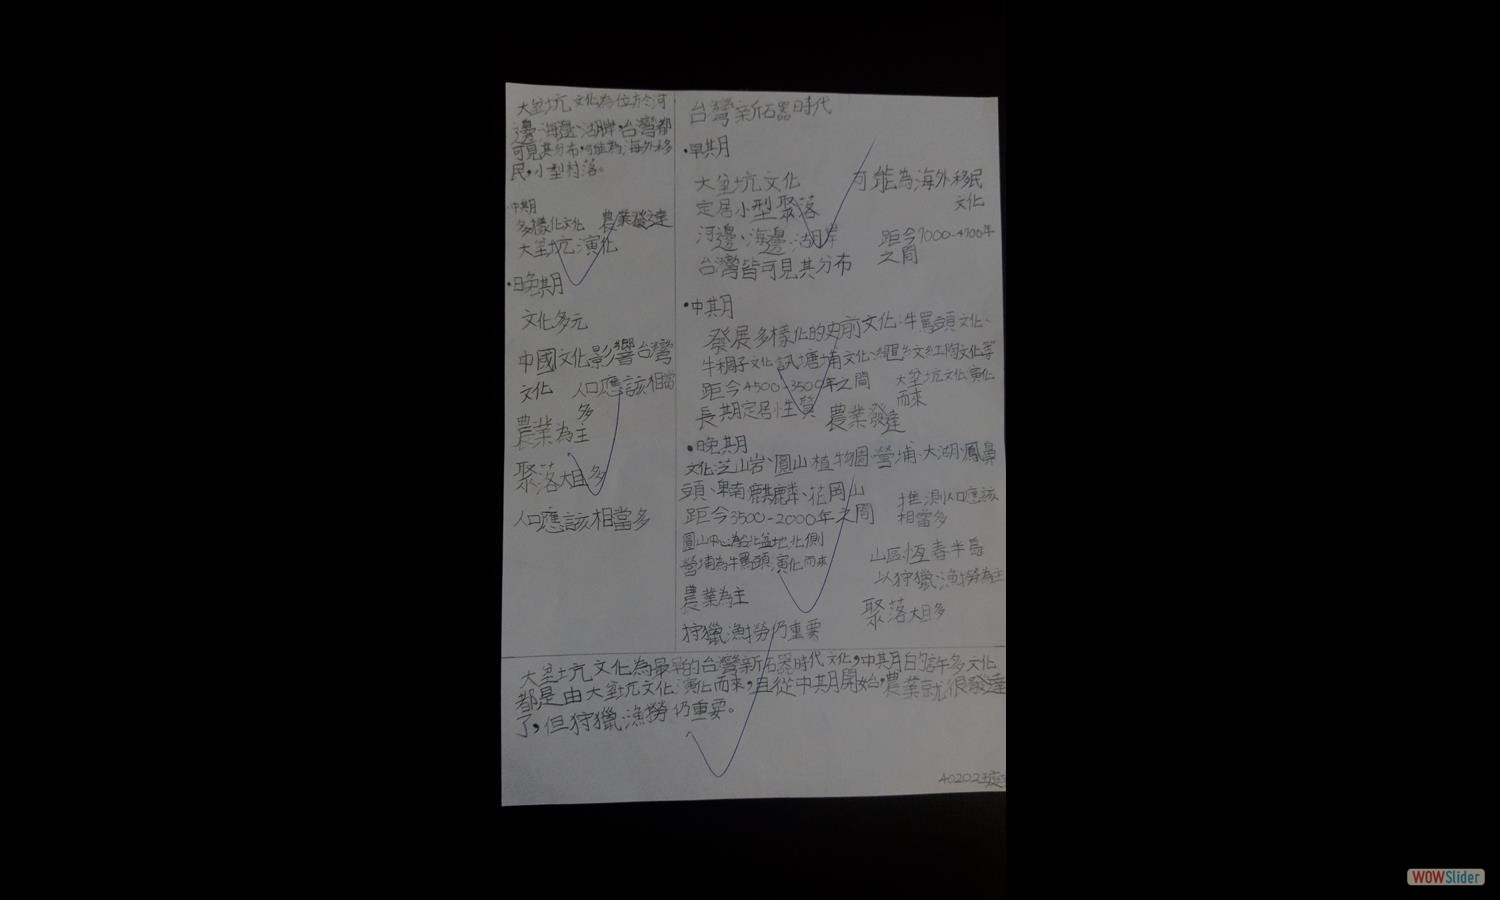 大坌坑文化為位於河
邊、海邊、湖岸,台灣都
可見其分布,可能為海外移
民,小型村落。
中期
多樣化文化 農業發達
大坌坑演化
•晚期
文化多元
中國文化影響台灣
文化 人口應該相當
多
農業為主
聚落大且多
人口應該相當多
台灣新石器時代
•早期
大坌坑文化 可能為海外移民
文化
定居小型聚落
河邊、海邊、湖岸 距今7000-4700年
之間
台灣皆可見其分布
•中期
發展多樣化的史前文化:牛罵頭文化、
牛稠子文化、訊塘埔文化、繩紋紅陶文化等
距今4500-3500年之間 大坌坑文化演化
而來
長期定居性質 農業發達
•晚期
文化:芝山岩、圓山、植物園、營埔、大湖、鳳鼻
頭、卑南、麒麟、花岡山
距今3500-2000年之間 推測人口應該
相當多
圓山中心為台北盆地北側
營埔為牛罵頭演化而來
山區、恆春半島
以狩獵漁撈為主
農業為主
聚落大且多
狩獵漁撈仍重要
大坌坑文化為最早的台灣新石器時代文化,中期的許多文化
都是由大坌坑文化演化而來,且從中期開始,農業就很發達
了,但狩獵漁撈仍重要。
402023
WOWSlider